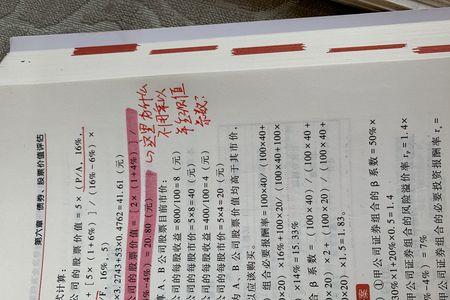 第六章 债券、股票价值评估
式计算：
公司的股票价值＝5×(P/A，16%，
＋[5×(1＋6%)]/(16%－6%)×
/F，16%，5)
×3.2743＋53×0.4762＝41.61(元)
公司的股票价值＝[2×(1＋4%)]/
6%－4%)＝20.80(元)
这里为什么
不用乘以
系数?
算A、B公司股票目前市价：
公司的每股收益＝800/100＝8(元)
公司的每股市价＝5×8＝40(元)
公司的每股收益＝400/100＝4(元)
公司的每股市价＝5×4＝20(元)
为A、B公司股票价值均高于其市价，
以应该购买。
组合必要报酬率＝100×40/(100×40＋
×20)×16%＋100×20/(100×40＋100×
×14%＝15.33%
组合β系数＝(100×40)/(100×40＋
×20)×2＋(100×20)/(100×40＋
×20)×1.5＝1.83。
案 ①甲公司证券组合的β系数＝50%×
0%×1＋20%×0.5＝1.4
甲公司证券组合的风险溢价率rₚ＝1.4×
－4%)＝7%
甲公司证券组合的必要投资报酬率rᵢ＝